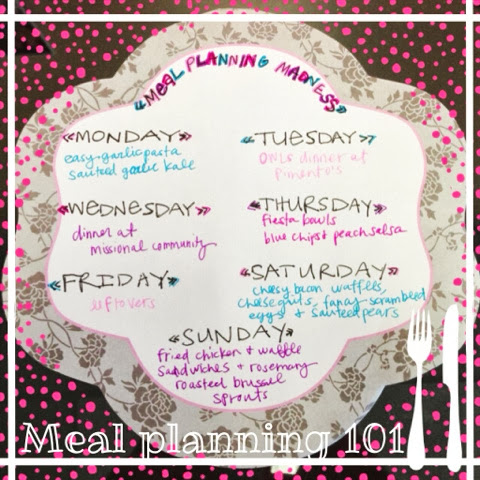 "MEAL PLANNING MADNESS"
«MONDAY»
easy garlic pasta
sauteed garlic kale
«TUESDAY»
OWLs dinner at
Pimento's
«WEDNESDAY»
dinner at
missional community
«THURSDAY»
fiesta bowls
blue chips & peach salsa
«FRIDAY»
leftovers
«SATURDAY»
cheesy waffles,
cheese grits, fancy scrambled
eggs & sauteed pears
«SUNDAY»
fried chicken & waffle
sandwiches & rosemary
roasted brussel
sprouts
Meal planning 101